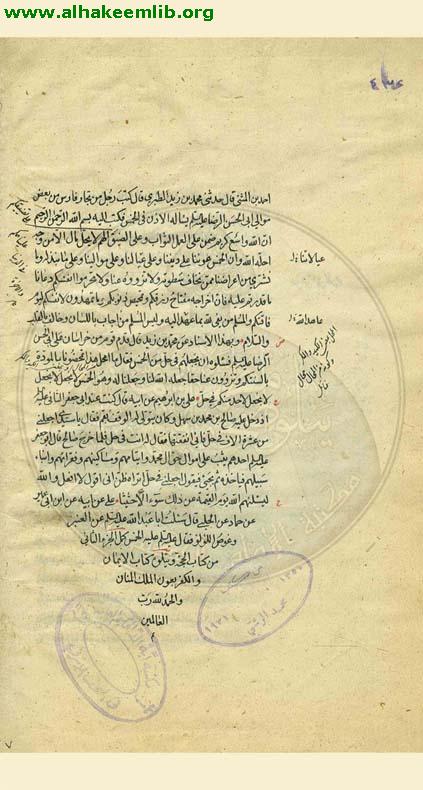 www.alhakeemlib.org
احمد بن المثنى قال حدثنى محمد بن زيد الطبرى قال كتب رجل من تجار فارس من بعض
موالى ابى الحسن الرضا عليه السلم يساله الاذن فى الخمس فكتب اليه بسم الله الرحمن الرحيم
ان الله واسع كريم ضمن على العمل الثواب وعلى الضيق الهم لا يحل مال الا من وجه
احله الله وان الخمس عوننا على ديننا وعلى عيالنا وعلى موالينا وما نبذله و
نشترى من اعراضنا ممن نخاف سطوته ولا تزووه عنا ولا تحرموا انفسكم دعانا
ما قدرتم عليه فان اخراجه مفتاح رزقكم وتمحيص ذنوبكم وما تمهدون لانفسكم ليوم
فاقتكم والمسلم من يفى لله بما عهد اليه وليس المسلم من اجاب باللسان وخالف بالقلب
والسلام وبهذا الاسناد عن محمد بن زيد قال قدم قوم من خراسان على ابى الحسن
الرضا عليه السلم فسئلوه ان يجعلهم فى حل من الخمس فقال ما امحل هذا تمحضونا بالمودة
بالسنتكم وتزوون عنا حقا جعله الله لنا وجعلنا له وهو الخمس لا نجعل لا نجعل
لا نجعل لاحد منكم فى حل على بن ابراهيم عن ابيه قال كنت عند ابى جعفر الثانى عليه السلم
اذ دخل عليه صالح بن محمد بن سهل وكان يتولى له الوقف بقم فقال يا سيدى اجعلنى
من عشرة الاف فى حل فانى انفقتها فقال له انت فى حل فلما خرج صالح قال ابو جعفر
عليه السلم احدهم يثب على اموال حق آل محمد وايتامهم ومساكينهم وفقرائهم وابناء
سبيلهم فياخذه ثم يجىء فيقول اجعلنى فى حل اتراه ظن انى اقول لا افعل والله
ليسئلنهم الله يوم القيمة عن ذلك سؤالا حثيثا على عن ابيه عن ابن ابى عمير
عن حماد عن الحلبى قال سئلت ابا عبد الله عليه السلم عن العنبر
وغوص اللؤلؤ فقال عليه السلم عليه الخمس كمل الجزء الثانى
من كتاب الحجة ويتلوه كتاب الايمان
والكفر بعون الملك المنان
والحمد لله رب
العالمين
عيالاتنا
عاهد الله